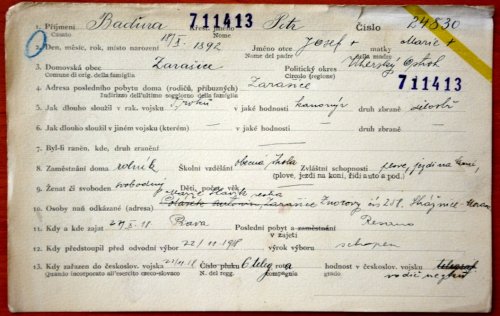 1. Příjmení Baďura 711413 Petr Číslo 24830
Casato Nome
2. Den, měsíc, rok, místo narození 18/X. 1892 Jméno otce Josef + matky Marie +
Nome del padre madre
3. Domovská obec Žarašice Politický okres Uherský Ostroh
Comune di orig. della famiglia Circolo (regione)
4. Adresa posledního pobytu doma (rodičů, příbuzných) Žarašice 711413
Indirizzo dell'ultimo soggiorno della famiglia
5. Jak dlouho sloužil v rak. vojsku roků v jaké hodnosti kanonýr druh zbraně
6. Jak dlouho sloužil v jiném vojsku (kterém) – v jaké hodnosti – druh zbraně –
7. Byl-li raněn, kde, druh zranění –
8. Zaměstnání doma rolník Školní vzdělání obecná škola Zvláštní schopnosti plove, jezdí na koni,
(plove, jezdí na koni, řídí auto a pod.)
9. Ženat či svoboden svobodný Děti, počet, věk
Marie
10. Osoby naň odkázané (adresa) Žarašice Znorovy čís 258.
11. Kdy a kde zajat Piava Poslední pobyt a zaměstnání
v zajetí
12. Kdy předstoupil před odvodní výbor 22/11 1918 výrok výboru schopen
13. Kdy zařazen do českoslov. vojska Číslo pluku 6 rota hodnost v českoslov. vojsku
Quando incorporato all'esercito czeco-slovaco N. del regg. compagnia grado